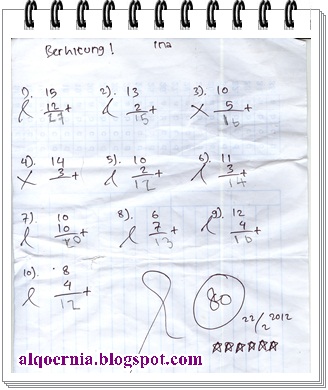 Berhitung! Ina
1). 15 2). 13 3). 10
12 + 2 + 5 +
27 15 16
4). 14 5). 10 6). 11
3 + 2 + 3 +
12 14
7). 10 8). 6 9). 12
10 + 7 + 4 +
20 13 16
10). 8
4 +
12
80
22/2 2012
alqoernia.blogspot.com